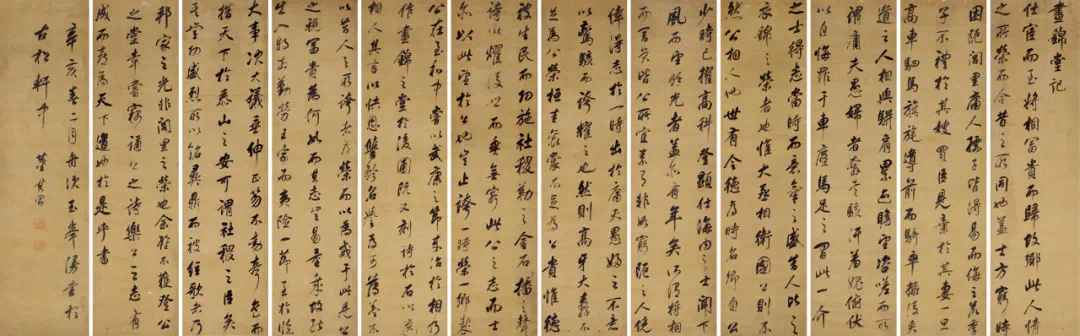 晝錦堂記
仕宦而至將相富貴而歸故鄉此人情
之所榮而今昔之所同也蓋士方窮時
困阨閭里庸人孺子皆得易而侮之若季
子不禮於其嫂買臣見棄於其妻一旦
高車駟馬旗旄導前而騎卒擁後夾
道之人相與駢肩累迹瞻望咨嗟而所
謂庸夫愚婦者奔走駭汗羞愧俯伏
以自悔罪于車塵馬足之間此一介
之士得志當時而意氣之盛昔人比之
衣錦之榮者也惟大丞相衛國公則不
然公相人也世有令德為時名卿自公
少時已擢高科登顯仕海內之士聞下
風而望餘光者蓋亦有年矣所謂將相
而富貴皆公所宜素有非如窮阨之人僥
倖得志於一時出於庸夫愚婦之不意
以驚駭而誇耀之也然則高牙大纛不
足為公榮桓圭袞裳不足為公貴惟德
被生民而功施社稷勒之金石播之聲
詩以耀後世而垂無窮此公之志而士
亦以此望於公也豈止誇一時榮一鄉哉
公在至和中嘗以武康之節來治於相乃
作晝錦之堂於後圃既又刻詩於石以遺
相人其言以快恩讐矜名譽為可薄蓋不
以昔人之所誇者為榮而以為戒于此見公
之視富貴為何如而其志豈易量哉故能
出入將相勤勞王家而夷險一節至於臨
大事決大議垂紳正笏不動聲色而
措天下於泰山之安可謂社稷之臣矣
其豐功盛烈所以銘彝鼎而被絃歌者乃
邦家之光非閭里之榮也余雖不獲登公
之堂幸嘗竊誦公之詩樂公之志有
成而喜為天下道也於是乎書
辛亥春二月舟次玉峯書於
古松軒中 董其昌